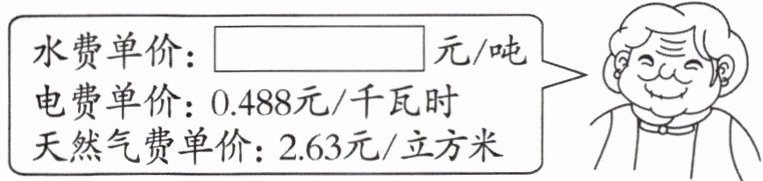 水费单价： 元/吨
电费单价：0.488元/千瓦时
天然气费单价：2.63元/立方米